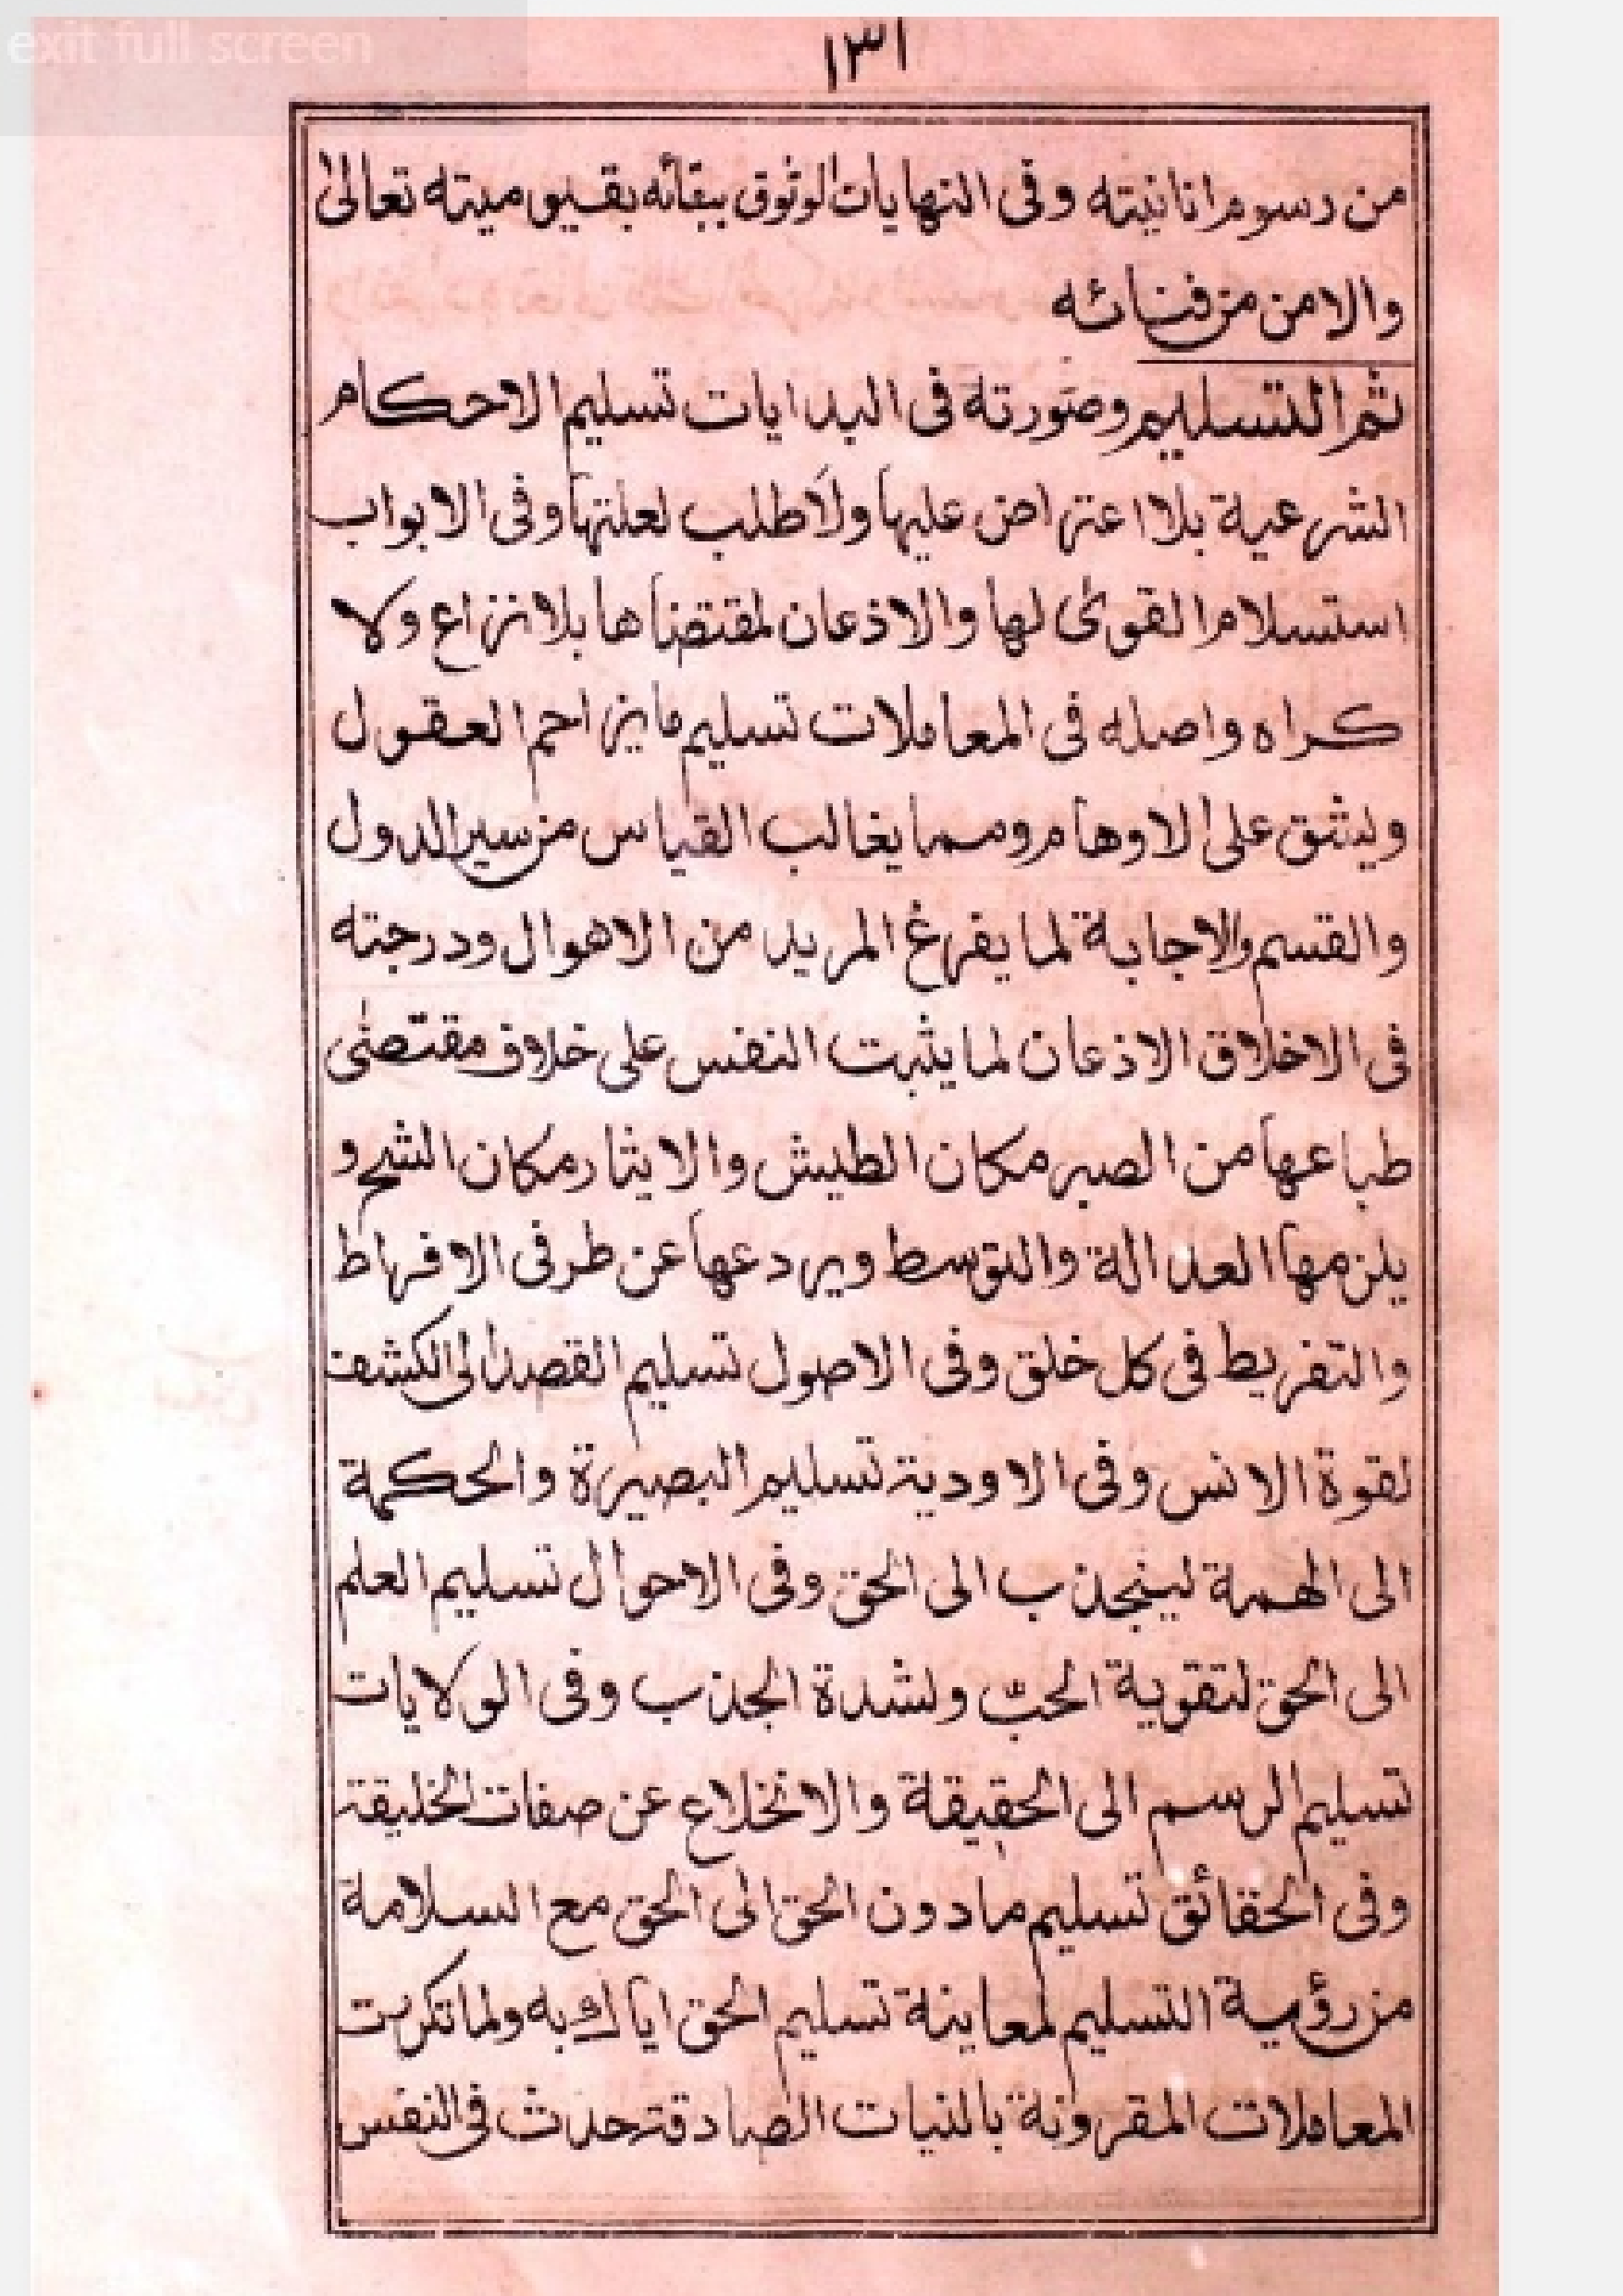 exit full screen
١٣١
من رسوم انانيته وفى النهايات الوثوق ببقائه بقيوميته تعالىٰ
والامن من فنائه
ثم التسليم وصورته فى البدايات تسليم الاحكام
الشرعية بلا اعتراض عليها ولا طلب لعلتها وفى الابواب
استسلام القوىٰ لها والاذعان لمقتضاها بلا نزاع ولا
كراه واصله فى المعاملات تسليم ما يزاحم العقول
ويشق على الاوهام ومما يغالب القياس من سير الدول
والقسم والاجابة لما يفزع المريد من الاهوال ودرجته
فى الاخلاق الاذعان لما يثبت النفس على خلاف مقتضى
طباعها من الصبر مكان الطيش والايثار مكان الشح و
يلزمها العدالة والتوسط ويردعها عن طرفى الافراط
والتفريط فى كل خلق وفى الاصول تسليم القصد الى الكشف
لقوة الانس وفى الاودية تسليم البصيرة والحكمة
الى الهمة لينجذب الى الحق وفى الاحوال تسليم العلم
الى الحق لتقوية الحبّ ولشدة الجذب وفى الولايات
تسليم الرسم الى الحقيقة والانخلاع عن صفات الخليقة
وفى الحقائق تسليم مادون الحق الى الحق مع السلامة
من رؤية التسليم لمعاينة تسليم الحق اياك به ولما تكررت
المعاملات المقرونة بالنيات الصادقة حدث فى النفس